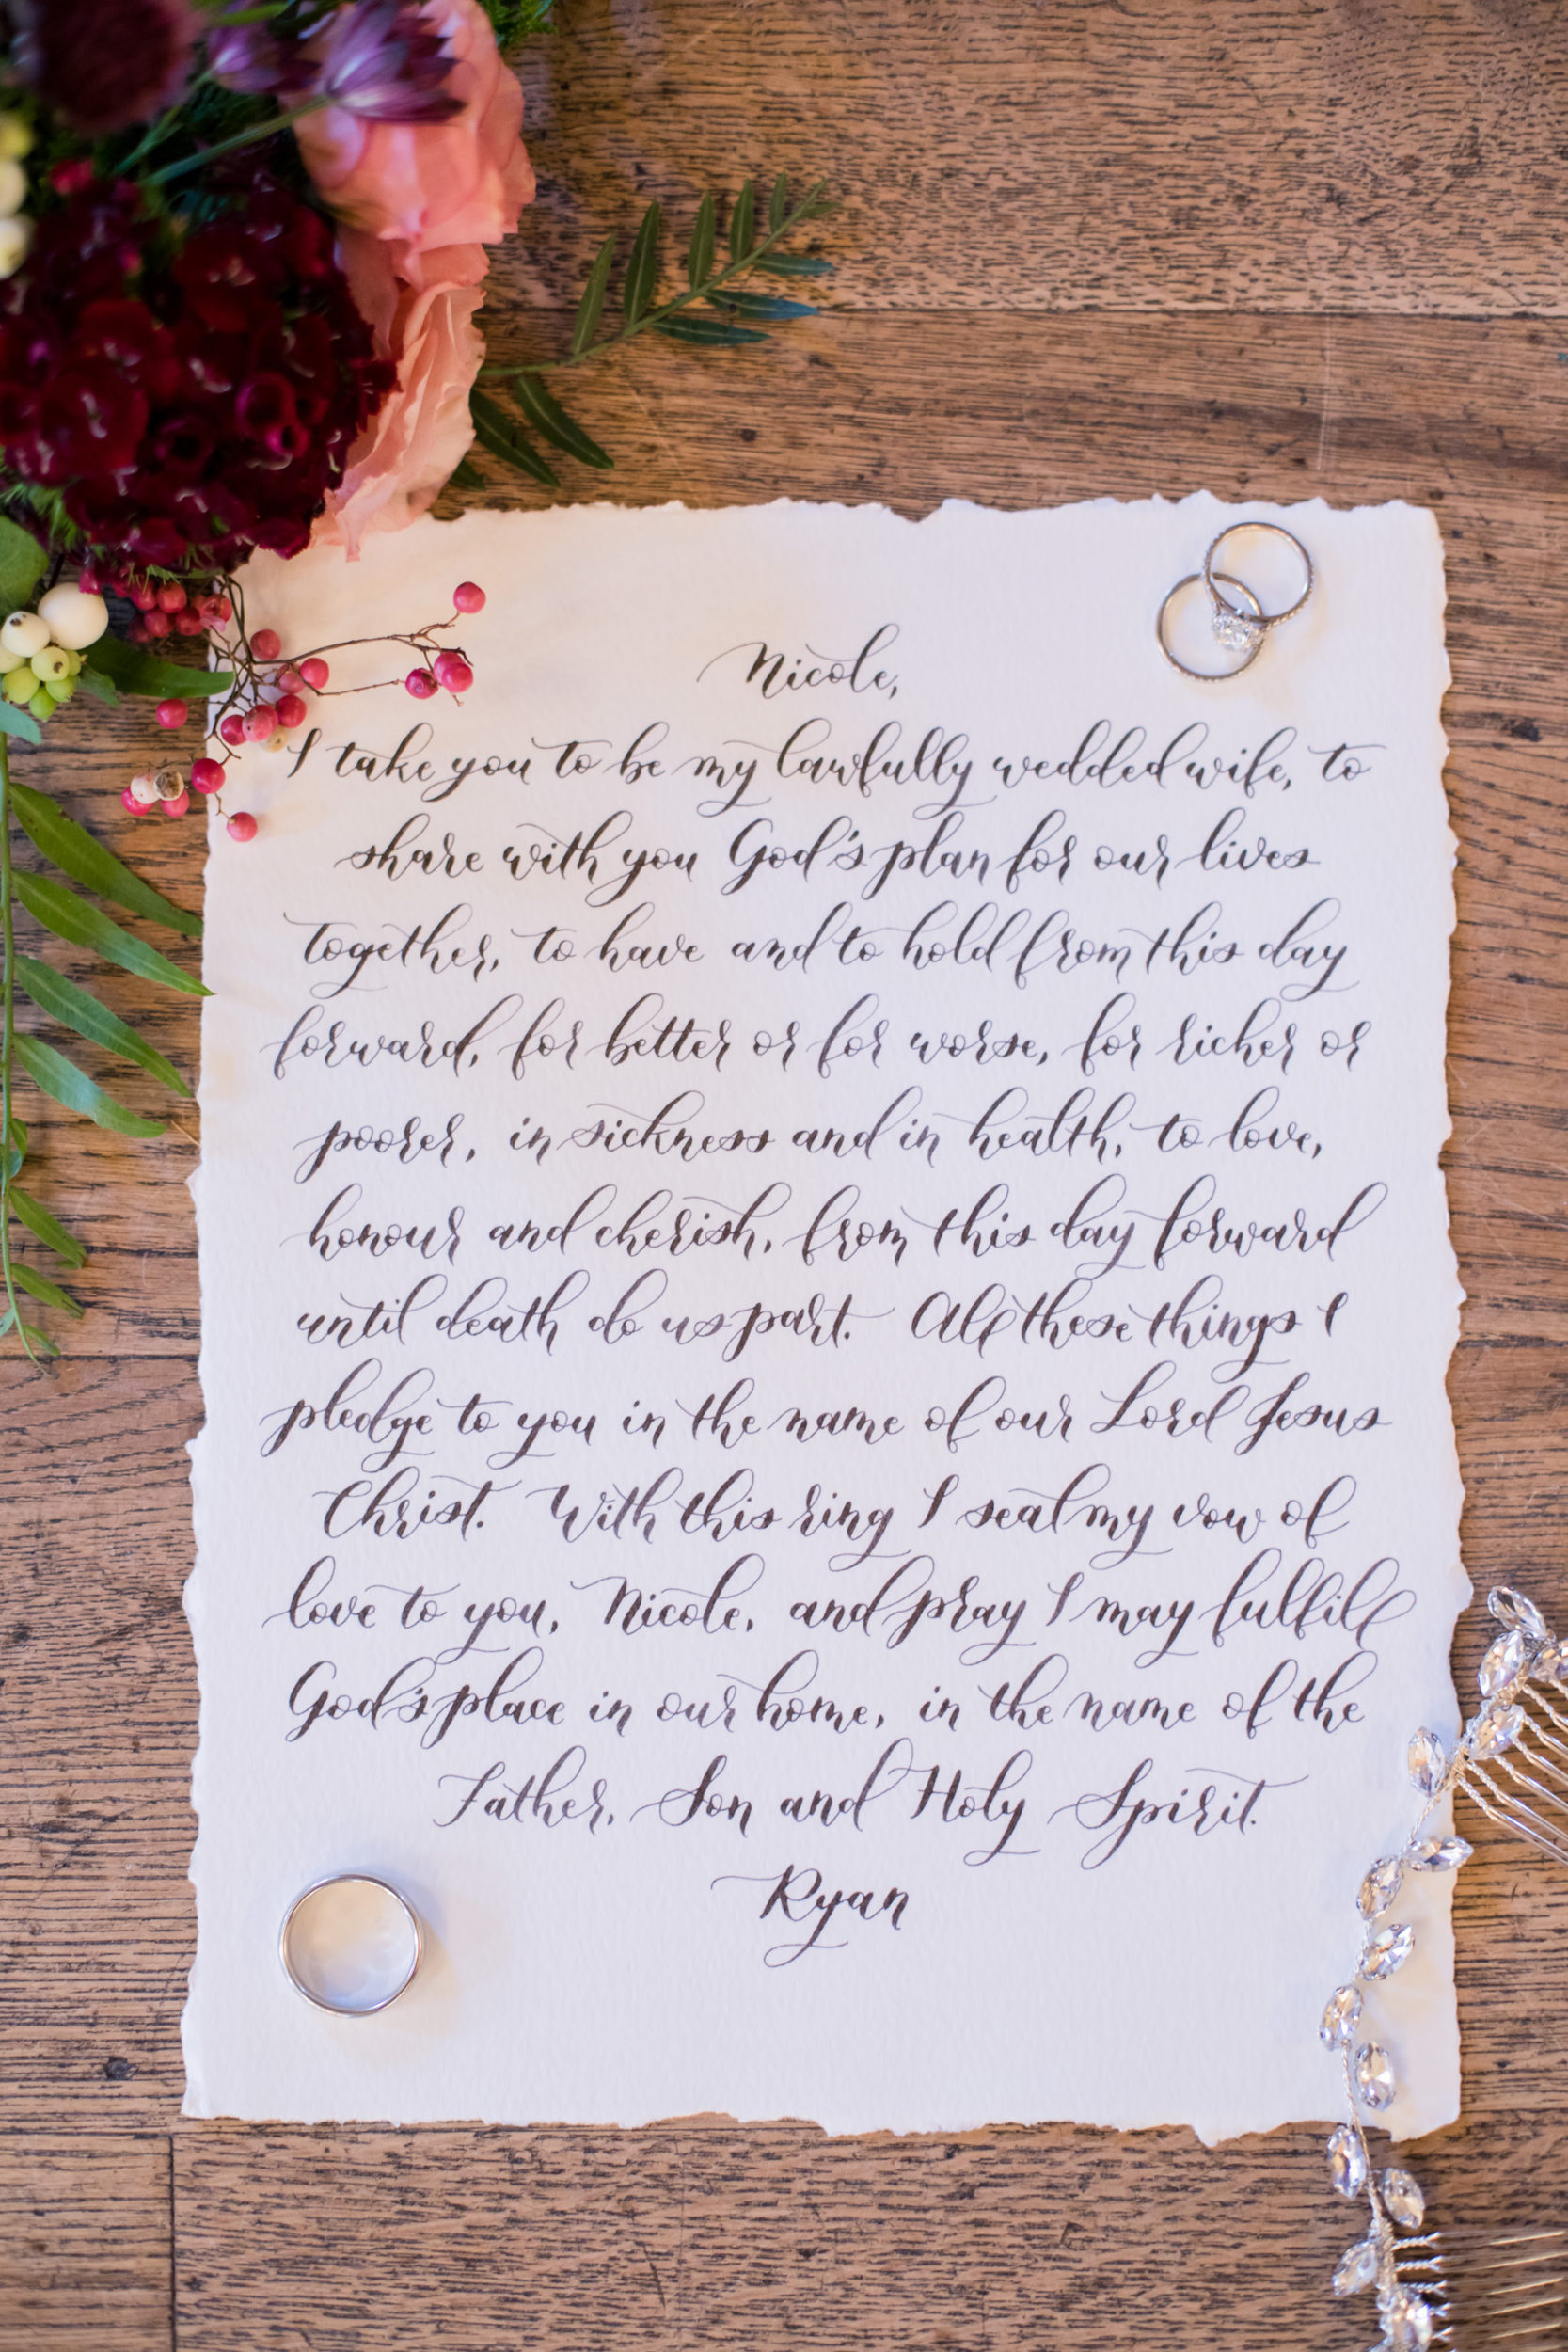 Nicole,
I take you to be my lawfully wedded wife, to
share with you God's plan for our lives
together, to have and to hold from this day
forward, for better or for worse, for richer or
poorer, in sickness and in health, to love,
honour and cherish, from this day forward
until death do us part. All these things I
pledge to you in the name of our Lord Jesus
Christ. With this ring I seal my vow of
love to you, Nicole, and pray I may fulfil
God's place in our home, in the name of the
Father, Son and Holy Spirit.
Ryan